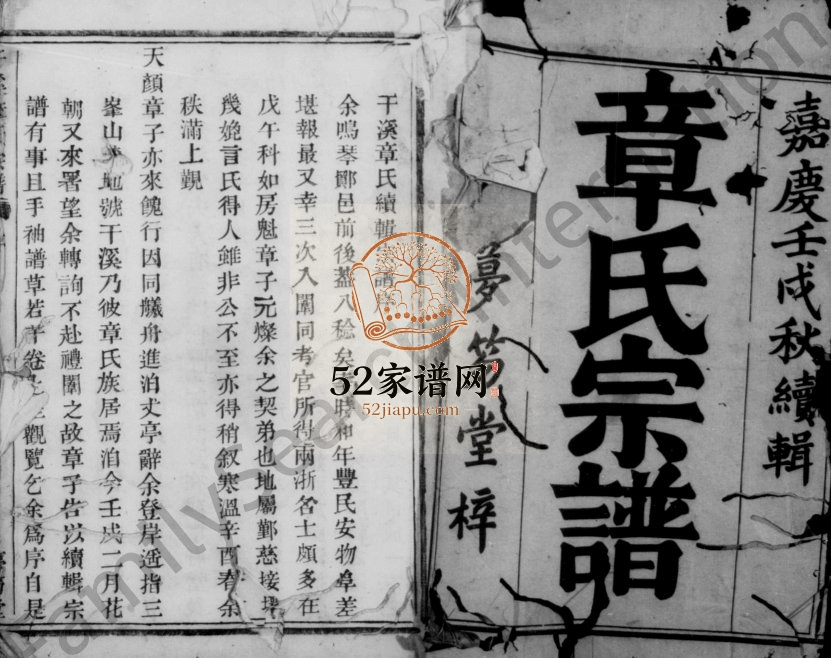 嘉慶壬戌秋續輯
章氏宗譜
夢筆堂梓
干溪章氏續輯譜序
余鳴琴鄮邑前後葢八稔矣時和年豐民安物阜差
堪報最又幸三次入闈同考官所得兩浙名士頗多在
戊午科如房魁章子元燦余之契弟也地屬鄞慈接壤
幾娩言氏得人雖非公不至亦得稍叙寒溫辛酉春余
秩滿上覲
天顔章子亦來餽行因同艤舟進泊丈亭辭余登岸遥指三
峯山 號干溪乃彼章氏族居焉洎今壬戌二月花
朝又來署望余轉詢不赴禮闈之故章子告以續輯宗
譜有事且手袖譜草若干卷 觀覽乞余爲序自是
52家谱网
52jiapu.com
FamilySearch International